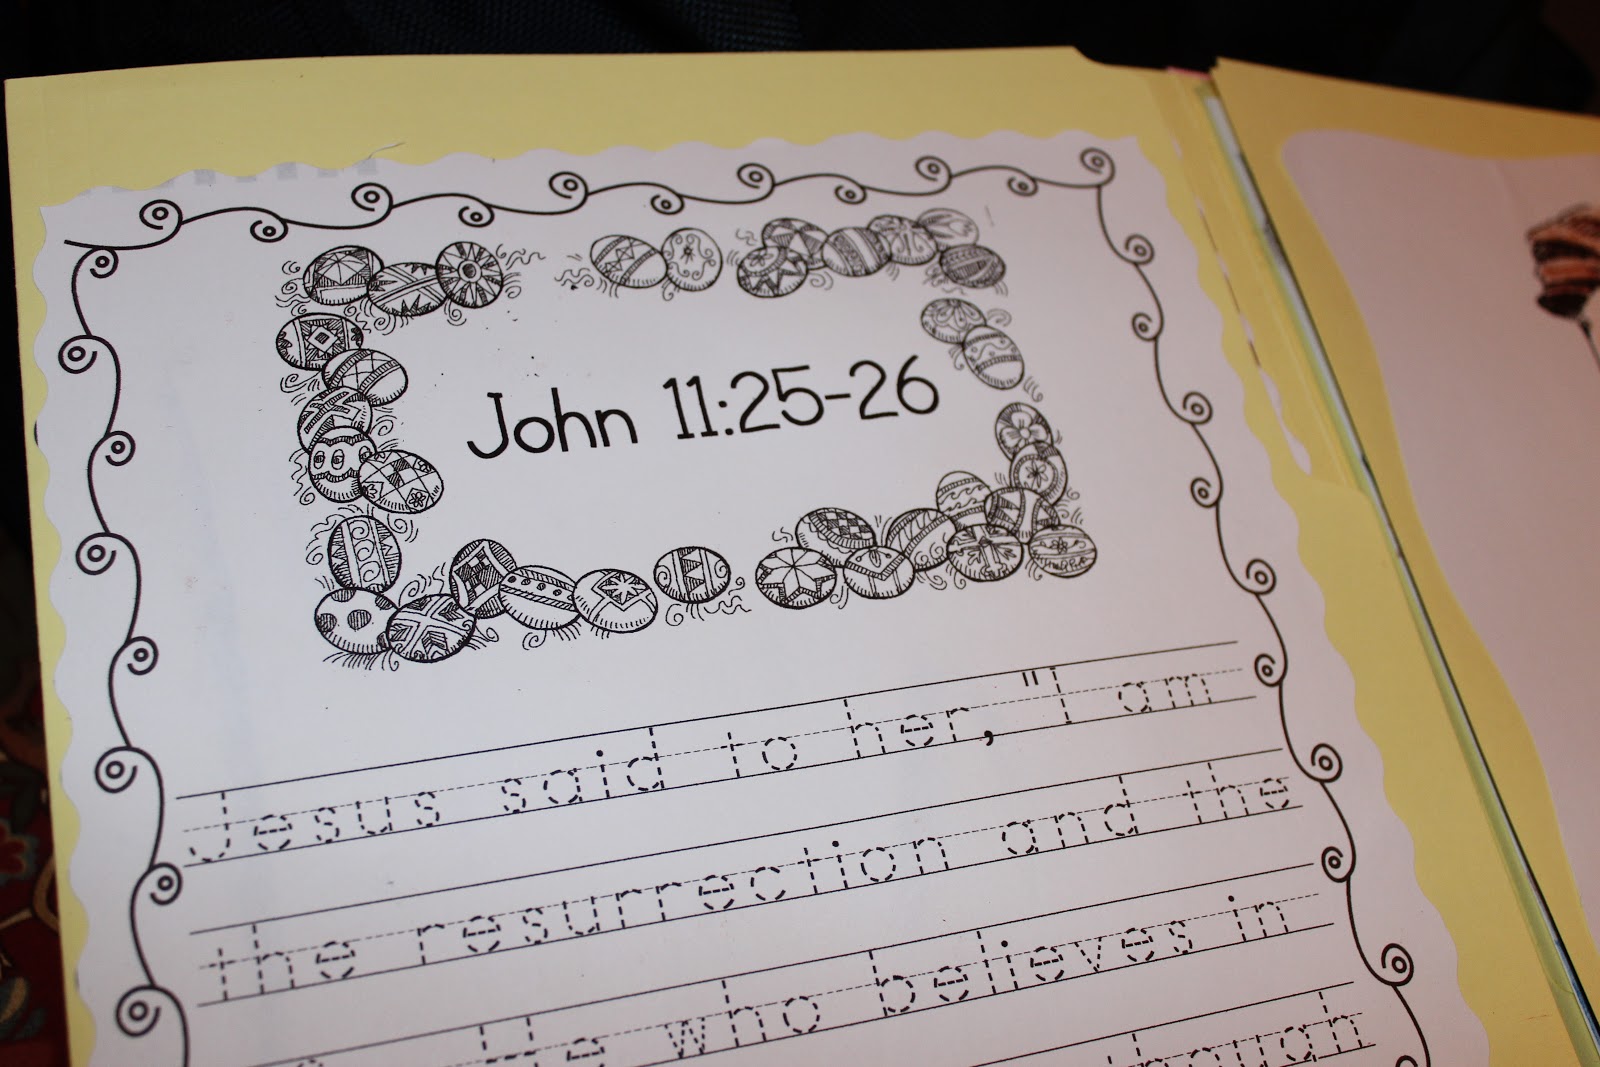 John 11:25-26
Jesus said to her, "I am
the resurrection and the
He who believes in